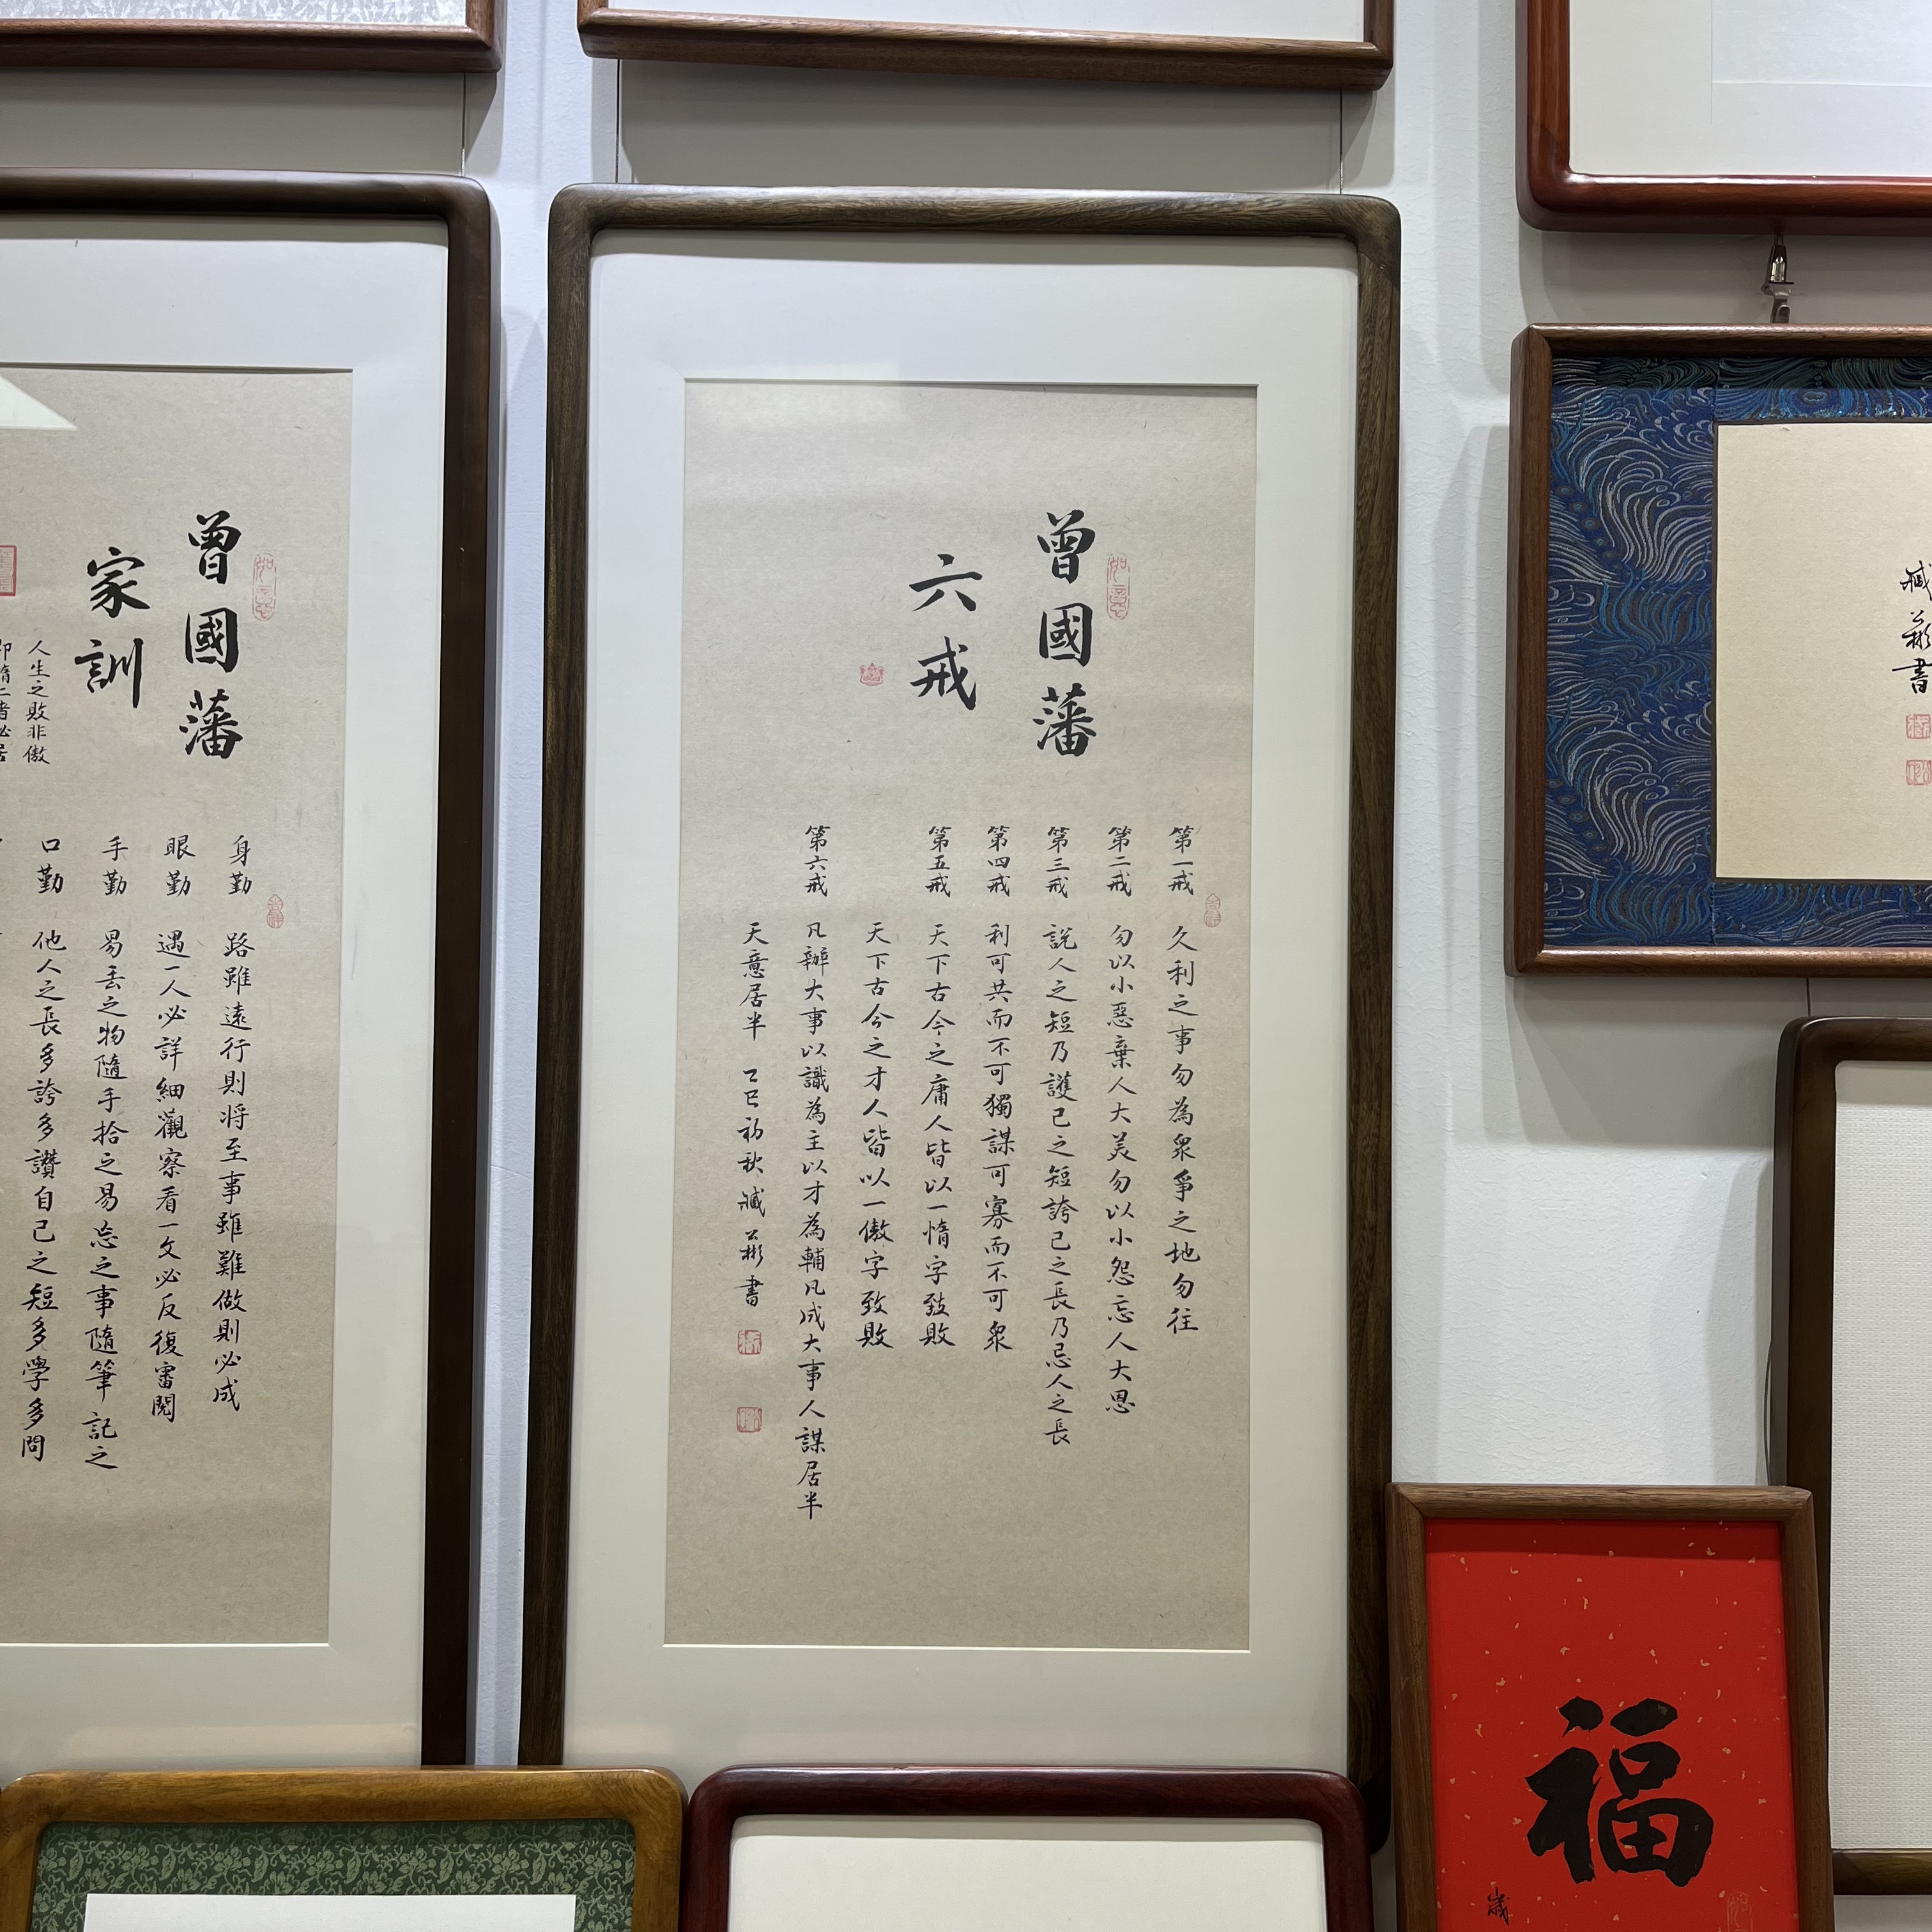 曾國藩
六戒
第一戒 久利之事勿為衆爭之地勿往
第二戒 勿以小惡棄人大美勿以小怨忘人大恩
第三戒 說人之短乃護己之短誇己之長乃忌人之長
第四戒 利可共而不可獨謀可寡而不可衆
第五戒 天下古今之庸人皆以一惰字致敗
天下古今之才人皆以一傲字致敗
第六戒 凡辦大事以識為主以才為輔凡成大事人謀居半
天意居半 乙巳初秋 臧彬書
曾國藩
家訓
人生之敗非傲
身勤 路雖遠行則將至事雖難做則必成
眼勤 遇一人必詳細觀察看一文必反復審閱
手勤 易丟之物隨手拾之易忘之事隨筆記之
口勤 他人之長多誇多讚自己之短多學多問
臧彬書
福